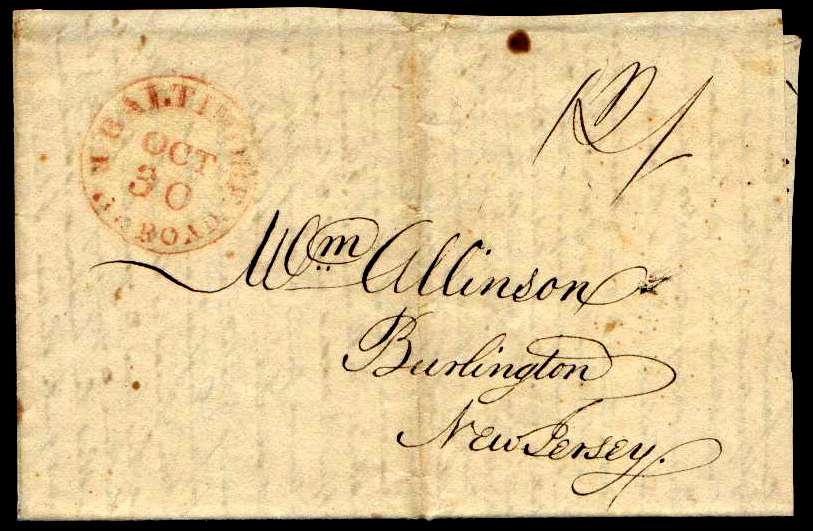 BALTIMORE
OCT
30
Wm Allinson
Burlington
New Jersey.